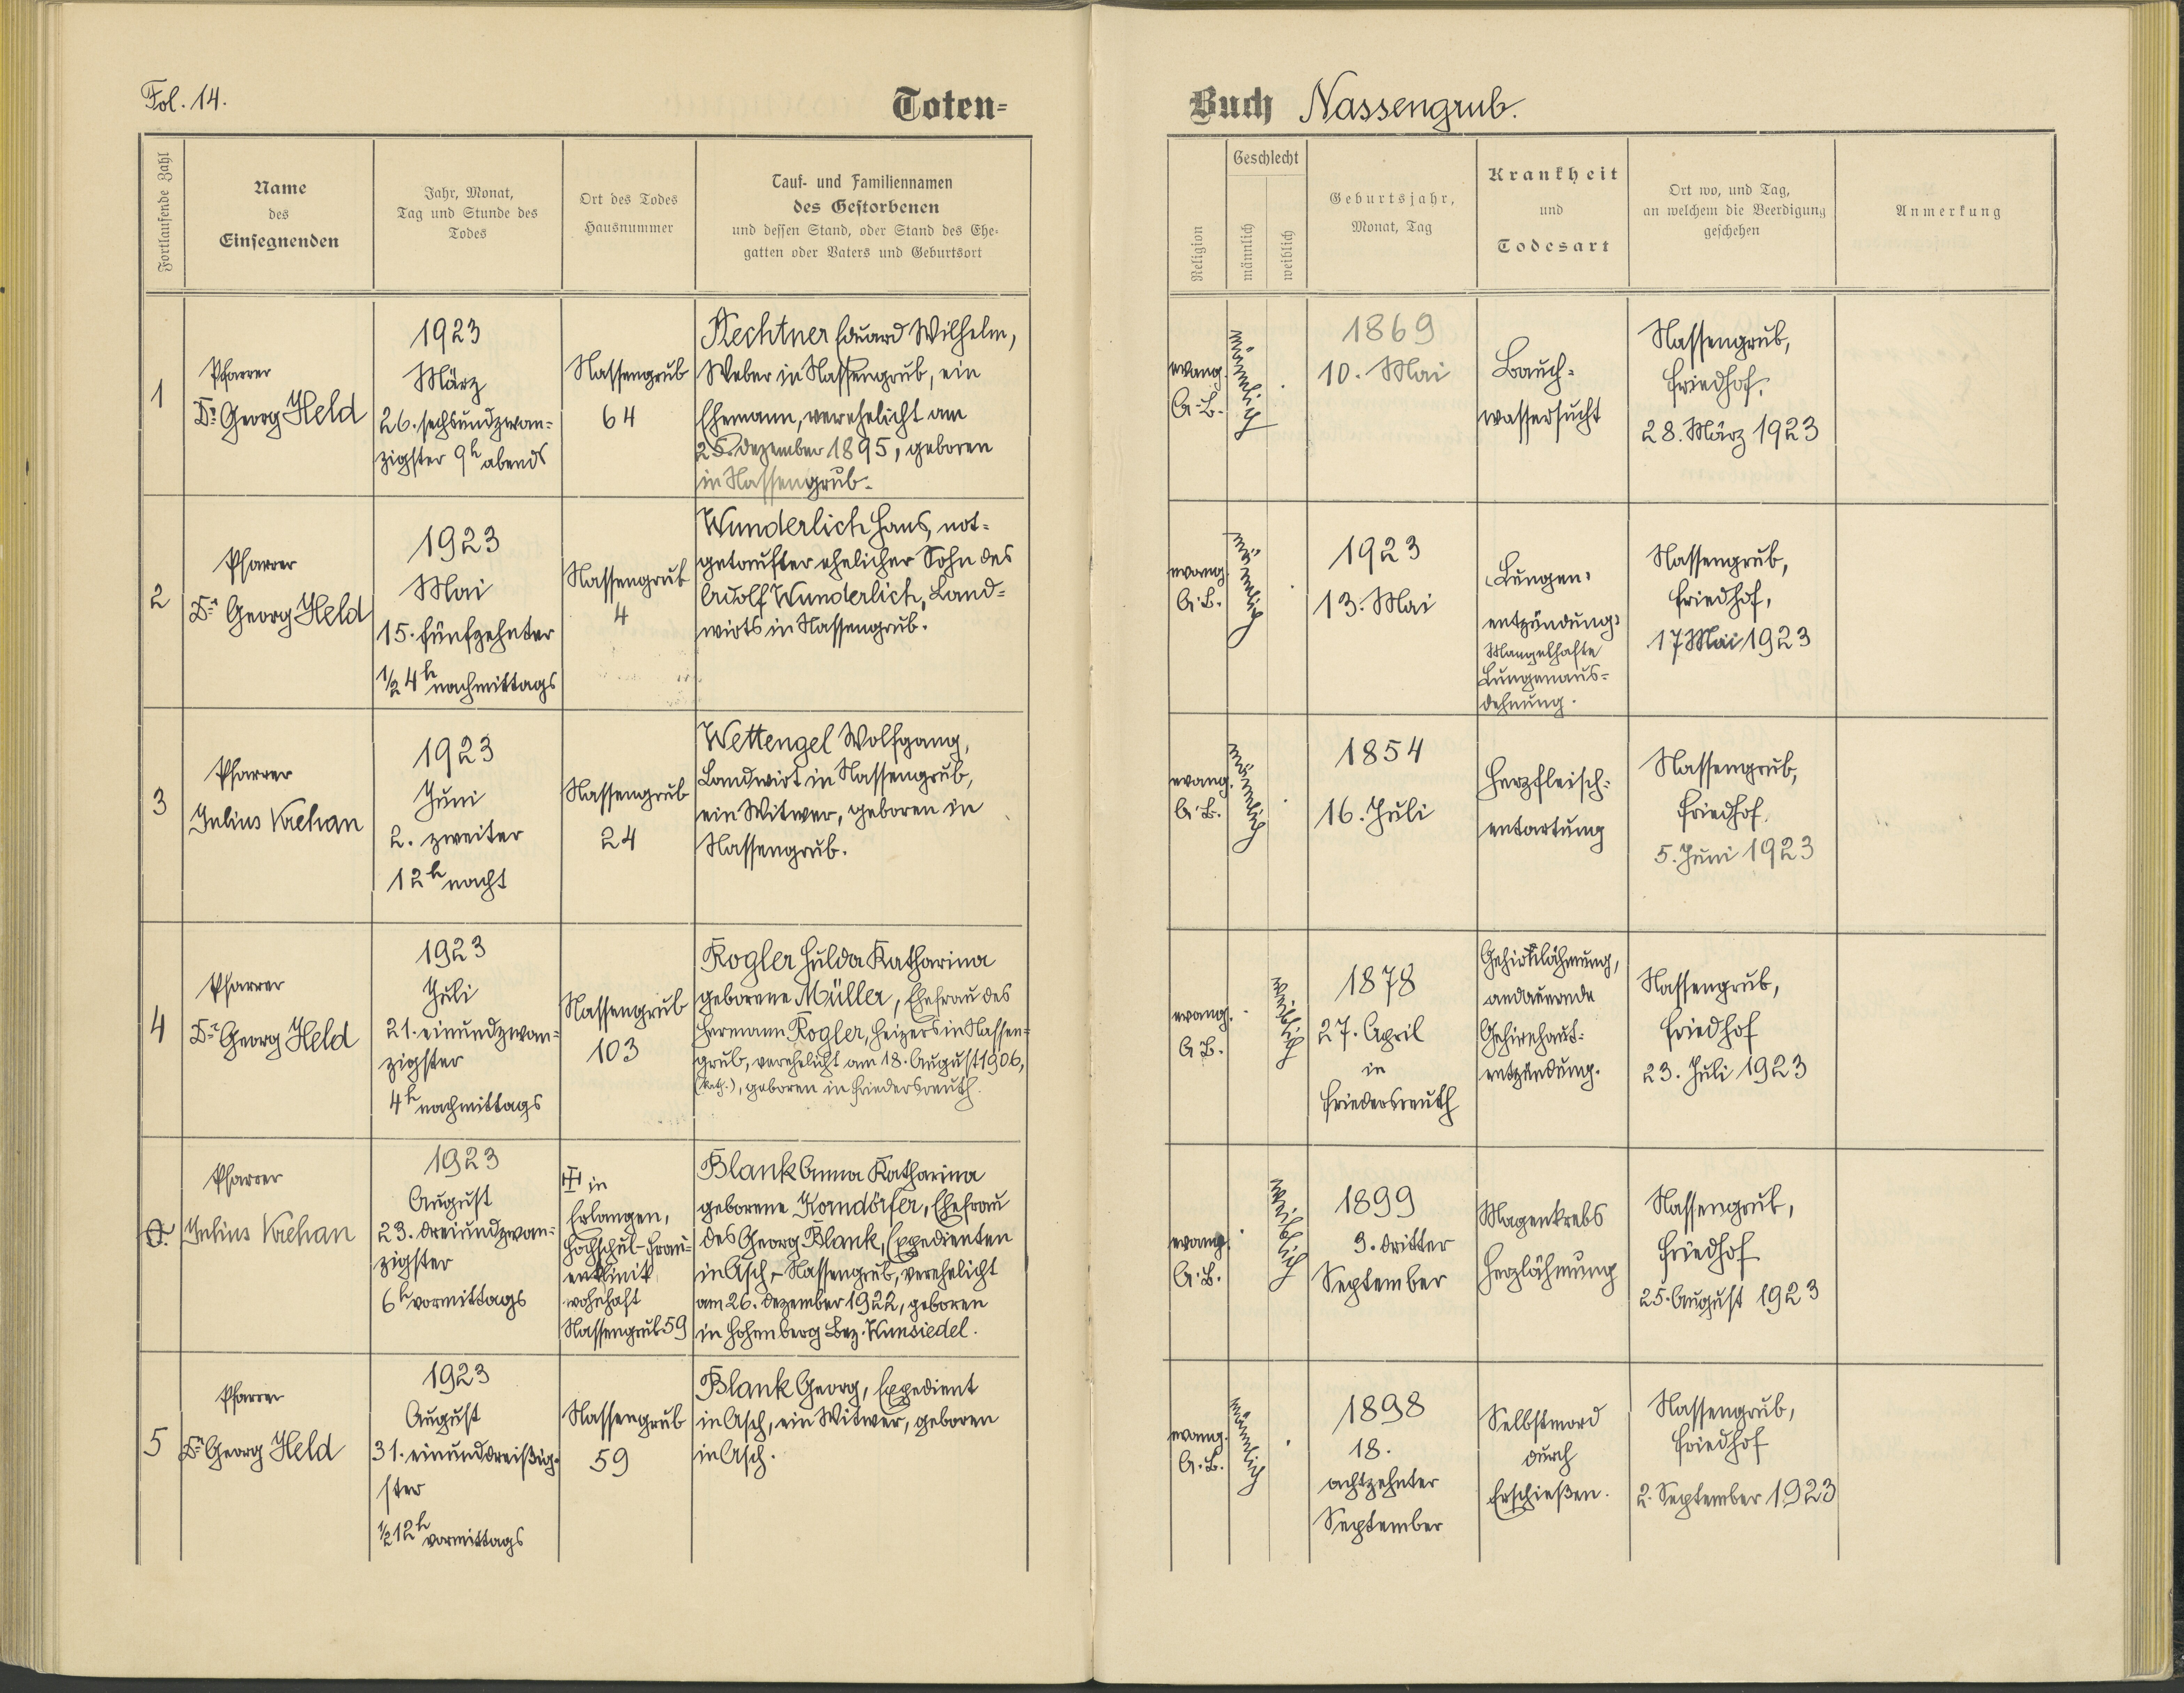 Fol. 14.
Toten-
Fortlaufende Zahl
Name
des
Einsegnenden
Jahr, Monat,
Tag und Stunde des
Todes
Ort des Todes
Hausnummer
Tauf- und Familiennamen
des Gestorbenen
und dessen Stand, oder Stand des Ehe-
gatten oder Vaters und Geburtsort
1
Pfarrer
Dr. Georg Held
1923
März
26. sechsundzwan-
zigster 9h abends
Nassengrub
64
Eduard Wilhelm,
Weber in Nassengrub, ein
Ehemann, verehelicht am
25. Dezember 1895, geboren
in Nassengrub.
2
Pfarrer
Dr. Georg Held
1923
Mai
15. fünfzehnter
1/2 4h nachmittags
Nassengrub
4
Wunderlich Hans, not-
getaufter ehelicher Sohn des
Adolf Wunderlich, Land-
wirts in Nassengrub.
3
Pfarrer
Julius Krehan
1923
Juni
2. zweiter
12h nacht
Nassengrub
24
Wettengel Wolfgang,
Landwirt in Nassengrub,
ein Witwer, geboren in
Nassengrub.
4
Pfarrer
Dr. Georg Held
1923
Juli
21. einundzwan-
zigster
4h nachmittags
Nassengrub
103
Kogler Hulda Katharina
geborene Müller, Ehefrau des
Hermann Kogler, Heizers in Nassen-
grub, verehelicht am 18. August 1906,
(kath.), geboren in Friedersreuth.
Pfarrer
Julius Krehan
1923
August
23. dreiundzwan-
zigster
6h vormittags
in
Erlangen,
Hochschul-Frau-
enklinik
wohnhaft
Nassengrub 59
Blank Anna Katharina
geborene Korndörfer, Ehefrau
des Georg Blank, Expedienten
in Asch, - Nassengrub, verehelicht
am 26. Dezember 1922, geboren
in Hohenberg Bez. Wunsiedel.
5
Pfarrer
Dr. Georg Held
1923
August
31. einunddreißig-
ster
1/2 12h vormittags
Nassengrub
59
Blank Georg, Expedient
in Asch, ein Witwer, geboren
in Asch.
Buch Nassengrub.
Religion
Geschlecht
männlich
weiblich
Geburtsjahr,
Monat, Tag
Krankheit
und
Todesart
Ort wo, und Tag,
an welchem die Beerdigung
geschehen
Anmerkung
evang.
A.B.
männlich
1869
10. Mai
Bauch-
wassersucht
Nassengrub,
Friedhof.
28. März 1923
evang.
A.B.
männlich
1923
13. Mai
Lungen-
entzündung:
Mangelhafte
Lungenaus-
dehnung.
Nassengrub,
Friedhof,
17 Mai 1923
evang.
A.B.
männlich
1854
16. Juli
Herzfleisch-
entartung
Nassengrub,
Friedhof.
5. Juni 1923
evang.
A.B.
weiblich
1878
27. April
in
Friedersreuth
Gehirnlähmung,
andauernde
Gehirnhaut-
entzündung.
Nassengrub,
Friedhof
23. Juli 1923
evang.
A.B.
weiblich
1899
3. dritter
September
Magenkrebs
Herzlähmung
Nassengrub,
Friedhof
25. August 1923
evang.
A.B.
männlich
1898
18.
achtzehnter
September
Selbstmord
durch
Erschießen.
Nassengrub,
Friedhof
2. September 1923